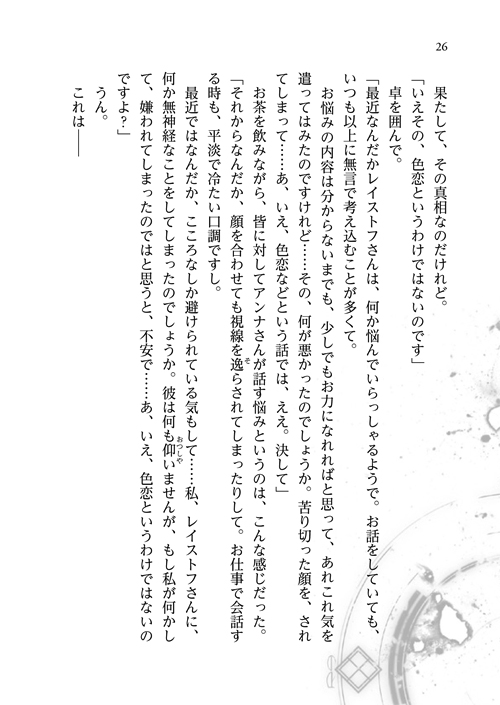 26
果たして、その真相なのだけれど。
「いえその、色恋というわけではないのです」
卓を囲んで。
「最近なんだかレイストフさんは、何か悩んでいらっしゃるようで。お話をしていても、
いつも以上に無言で考え込むことが多くて。
お悩みの内容は分からないまでも、少しでもお力になれればと思って、あれこれ気を
遣ってはみたのですけれど……その、何が悪かったのでしょうか。苦り切った顔を、され
てしまって……あ、いえ、色恋などという話では、ええ。決して」
お茶を飲みながら、皆に対してアンナさんが話す悩みというのは、こんな感じだった。
「それからなんだか、顔を合わせても視線を逸らされてしまったりして。お仕事で会話す
る時も、平淡で冷たい口調ですし。
最近ではなんだか、こころなしか避けられている気もして……私、レイストフさんに、
何か無神経なことをしてしまったのでしょうか。彼は何も仰いませんが、もし私が何かし
て、嫌われてしまったのではと思うと、不安で……あ、いえ、色恋というわけではないの
ですよ？」
うん。
これは――